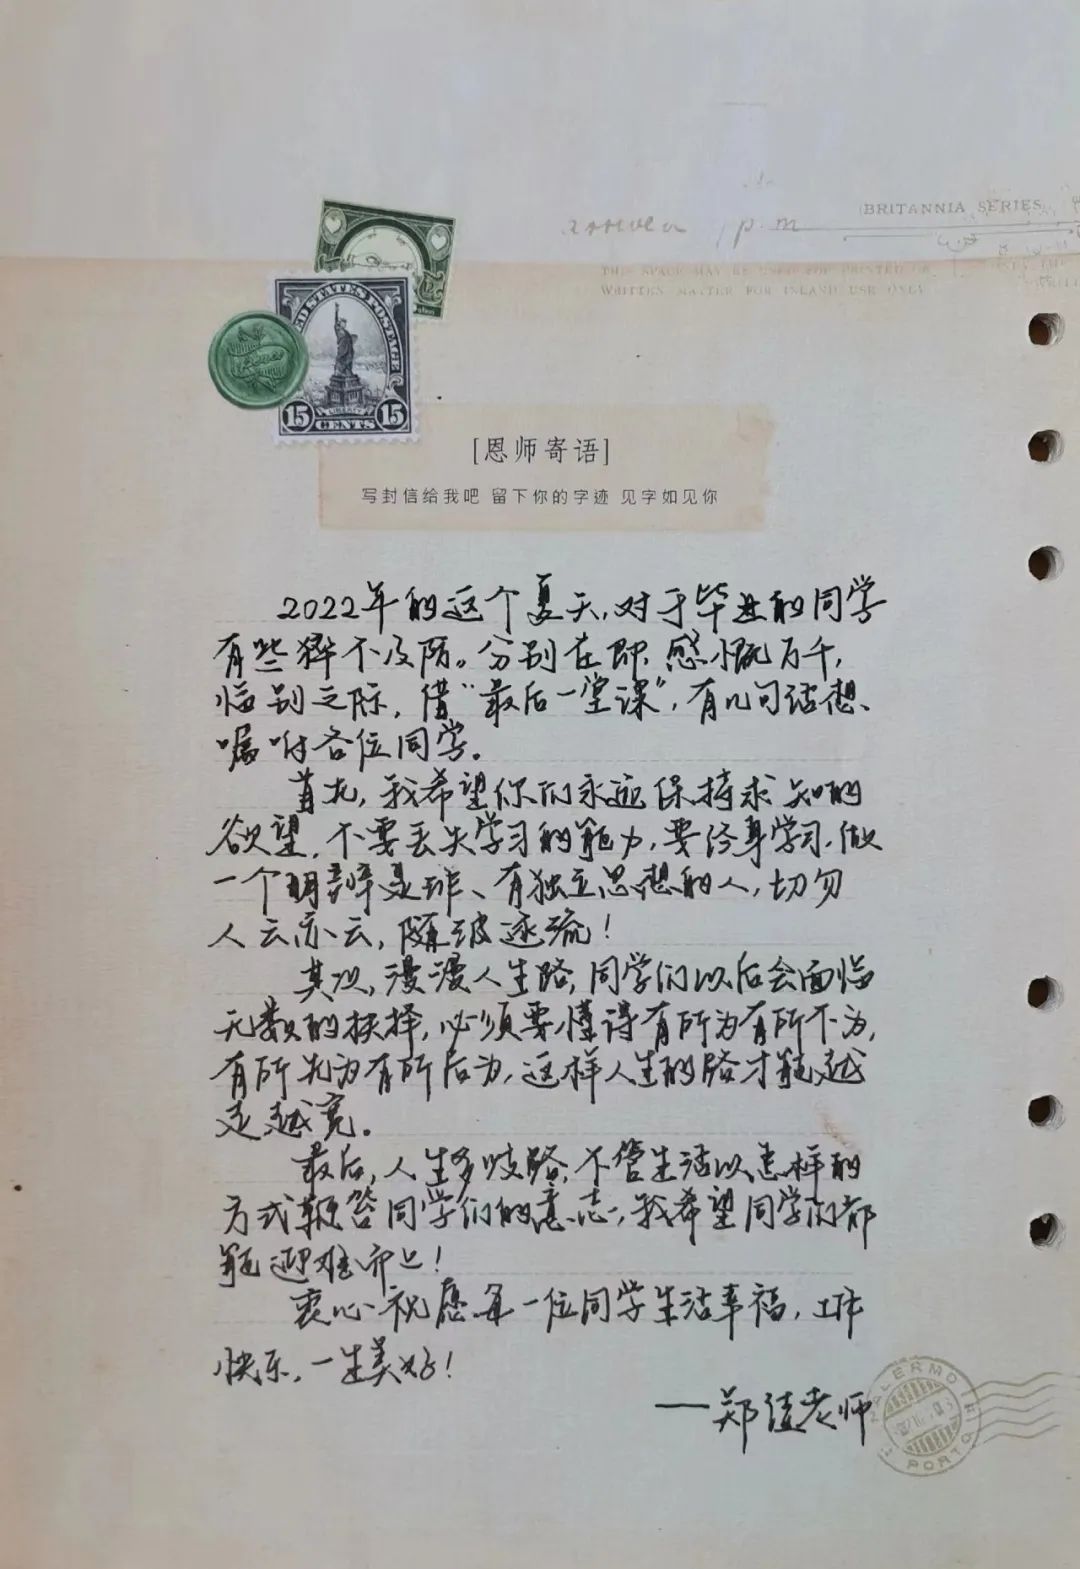 BRITANNIA SERIES
p.m
THIS SPACE MAY BE USED FOR PRINTED OR
WRITTEN MATTER FOR INLAND USE ONLY
UNITED STATES POSTAGE
LIBERTY
15 CENTS 15
[恩师寄语]
写封信给我吧 留下你的字迹 见字如见你
2022年的这个夏天,对于毕业的同学
有些猝不及防。分别在即,感慨万千,
临别之际,借“最后一堂课”,有几句话想
嘱咐各位同学。
首先,我希望你们永远保持求知的
欲望,不要丢失学习的能力,要终身学习,做
一个明辨是非、有独立思想的人,切勿
人云亦云,随波逐流!
其次,漫漫人生路,同学们以后会面临
无数的抉择,必须要懂得有所为有所不为,
有所先为有所后为,这样人生的路才能越
走越宽。
最后,人生多歧路,不管生活以怎样的
方式鞭笞同学们的意志,我希望同学们都
能迎难而上!
衷心祝愿每一位同学生活幸福,工作
快乐,一生美好!
——郑佳老师
PORTO